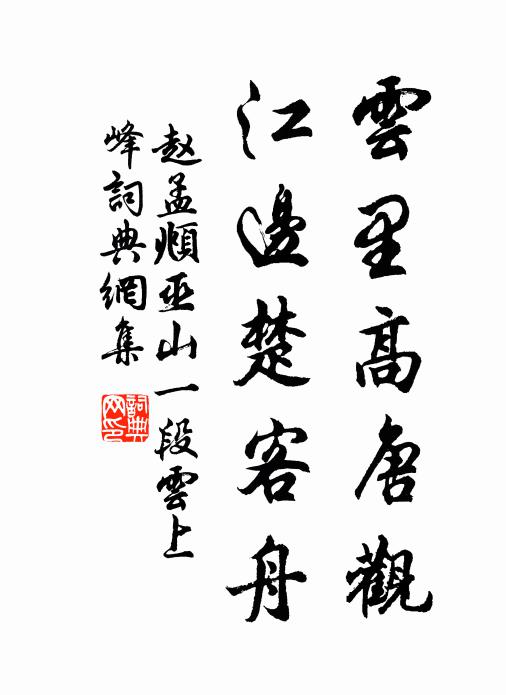 雲里高唐觀
江邊楚客舟
赵孟頫巫山一段雲上
峰詞典網集
詞典网印